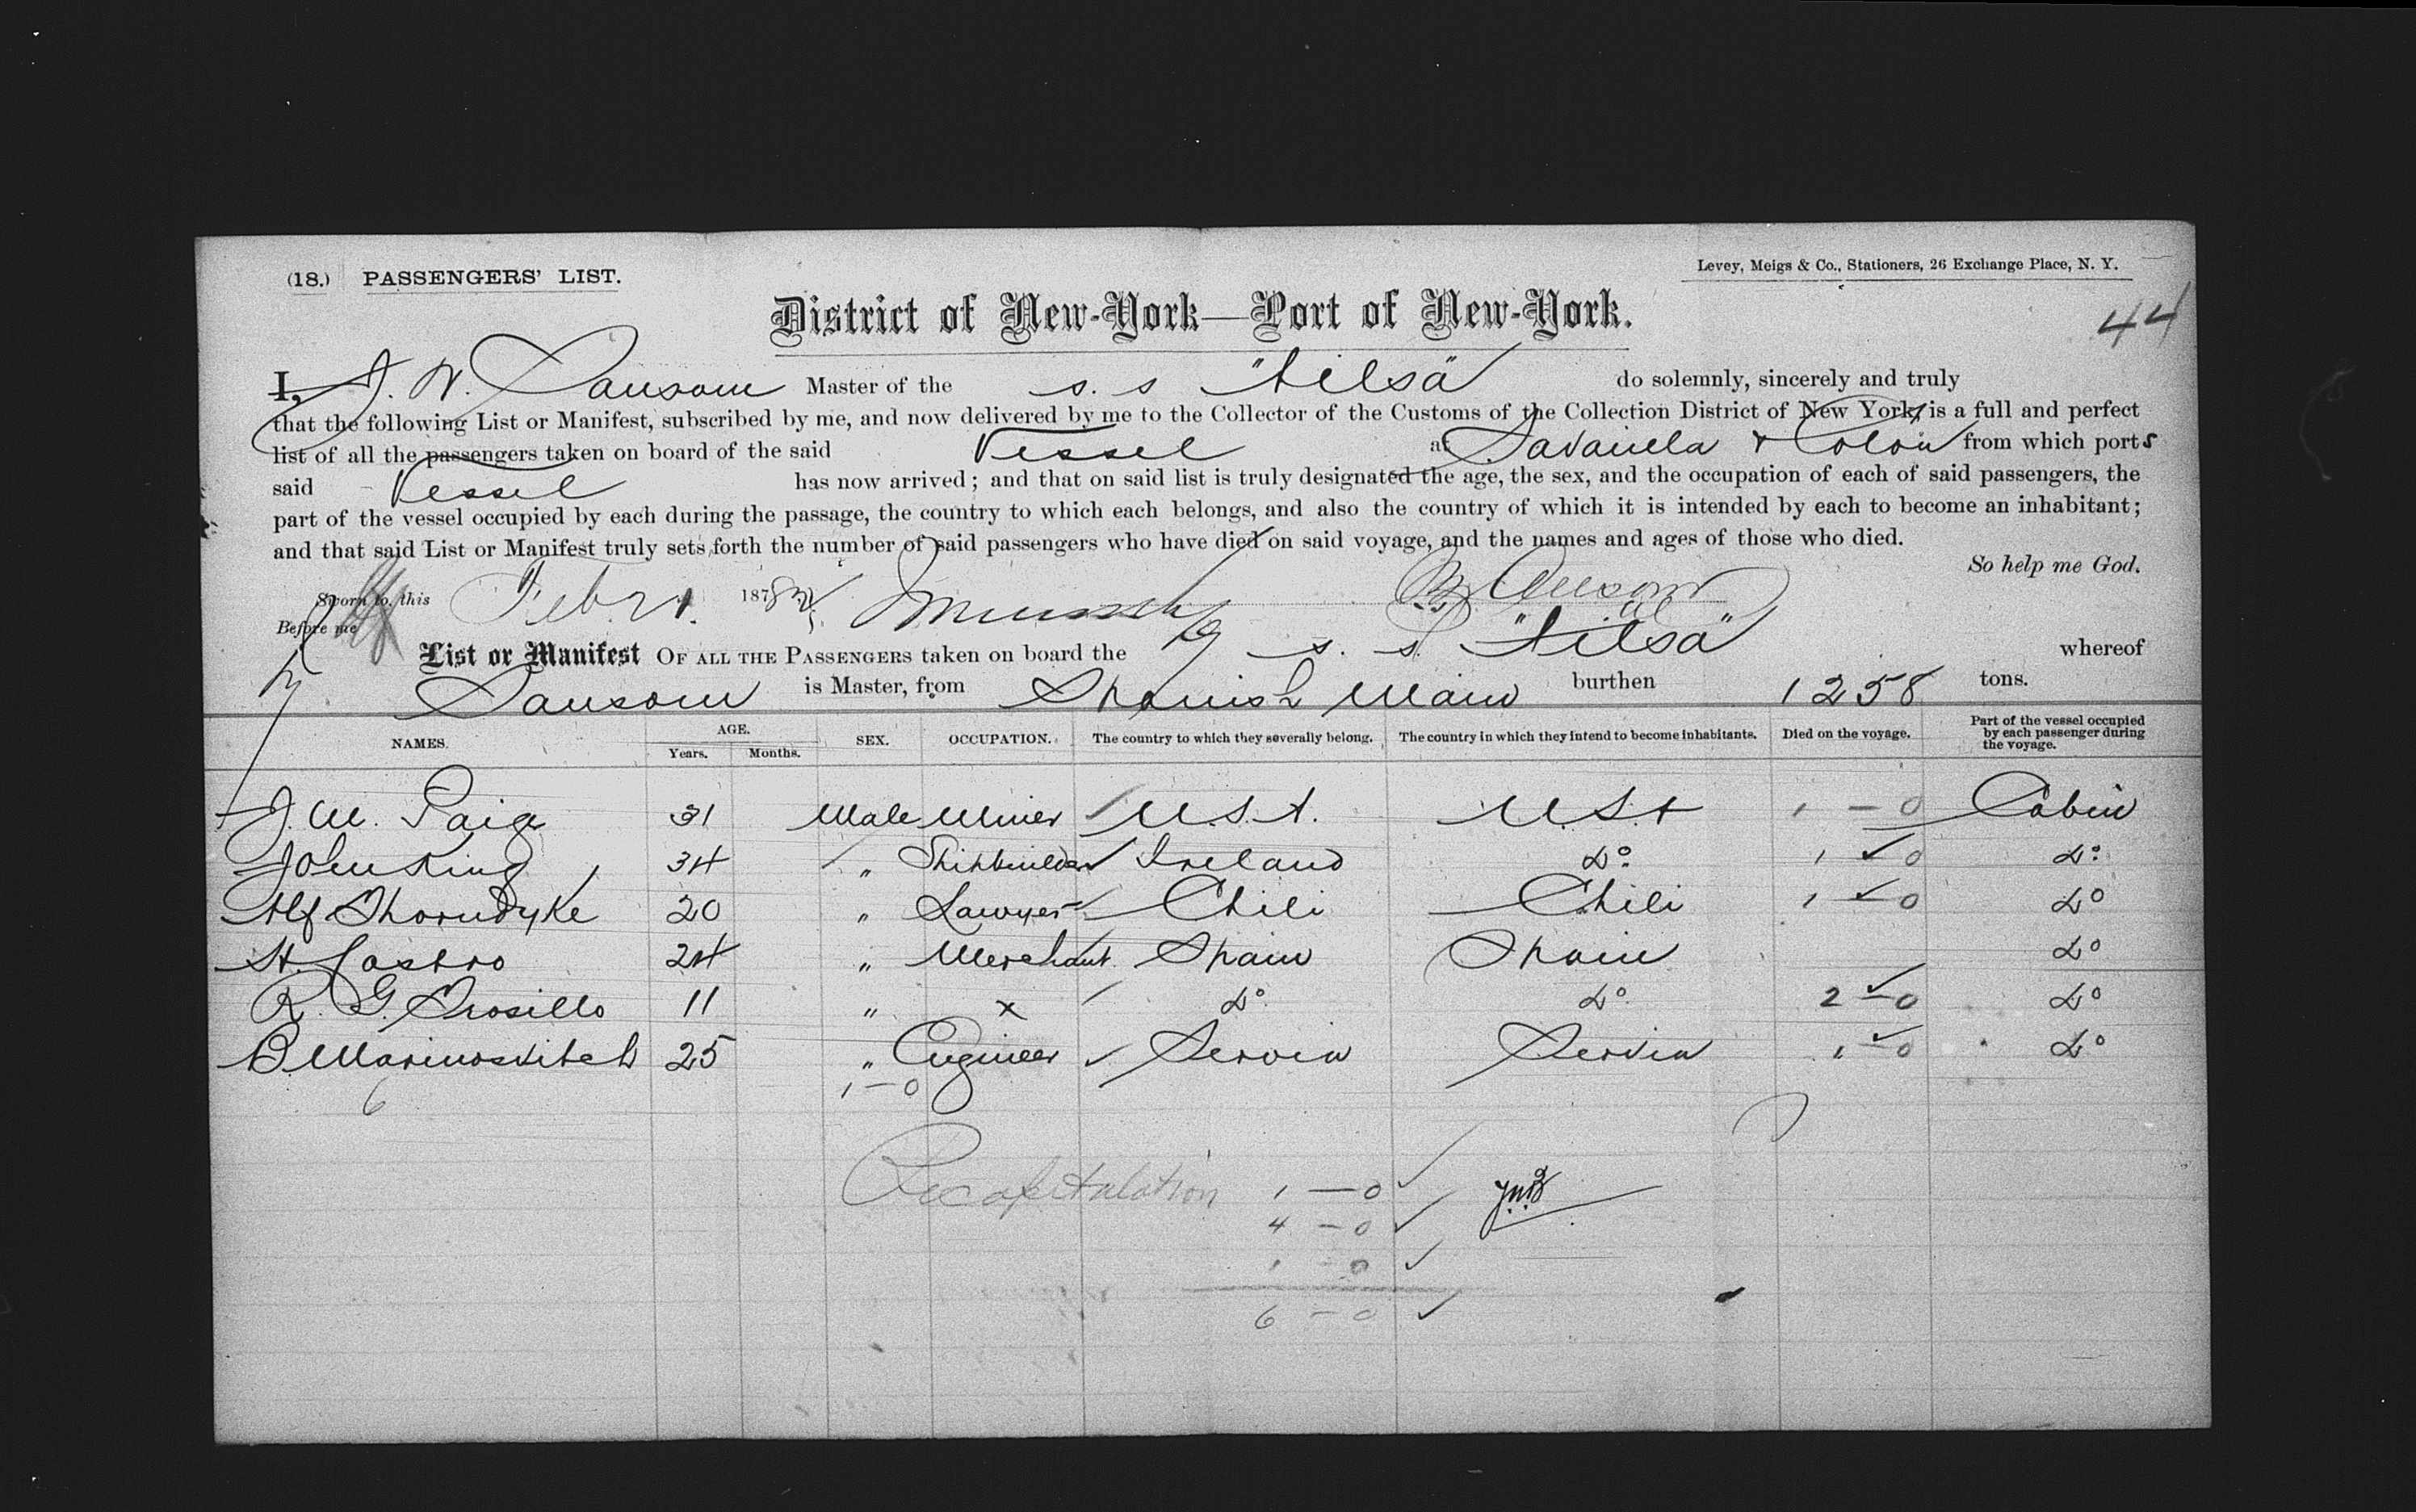 (18.) PASSENGERS' LIST.
Levey, Meigs & Co., Stationers, 26 Exchange Place, N. Y.
District of New-York—Port of New-York.
44
I, J. W. Sansom Master of the s. s "Ailsa" do solemnly, sincerely and truly
that the following List or Manifest, subscribed by me, and now delivered by me to the Collector of the Customs of the Collection District of New York, is a full and perfect
list of all the passengers taken on board of the said Vessel at Savanilla & Colon from which ports
said Vessel has now arrived; and that on said list is truly designated the age, the sex, and the occupation of each of said passengers, the
part of the vessel occupied by each during the passage, the country to which each belongs, and also the country of which it is intended by each to become an inhabitant;
and that said List or Manifest truly sets forth the number of said passengers who have died on said voyage, and the names and ages of those who died.
So help me God.
Sworn to, this Feb 21. 187
Before me
List or Manifest OF ALL THE PASSENGERS taken on board the s. s. "Ailsa" whereof
Sansom is Master, from Spanish Main burthen 1258 tons.
NAMES. AGE. Years. Months. SEX. OCCUPATION. The country to which they severally belong. The country in which they intend to become inhabitants. Died on the voyage. Part of the vessel occupied by each passenger during the voyage.
J. M. Paig 31 Male Miner U.S.A. U.S.A 1 — 0 Cabin
John King 34 " Shipbuilder Ireland Do 1 0 Do
Alf Thorndyke 20 " Lawyer Chili Chili 1 0 Do
H. Castro 24 " Merchant Spain Spain Do
R. G. 11 " x Do Do 2 — 0 Do
B Marinosvitch 25 " Engineer Servia Servia 1 0 Do
6 1 — 0
Recapitulation 1 — 0
4 — 0
1 0
6 — 0